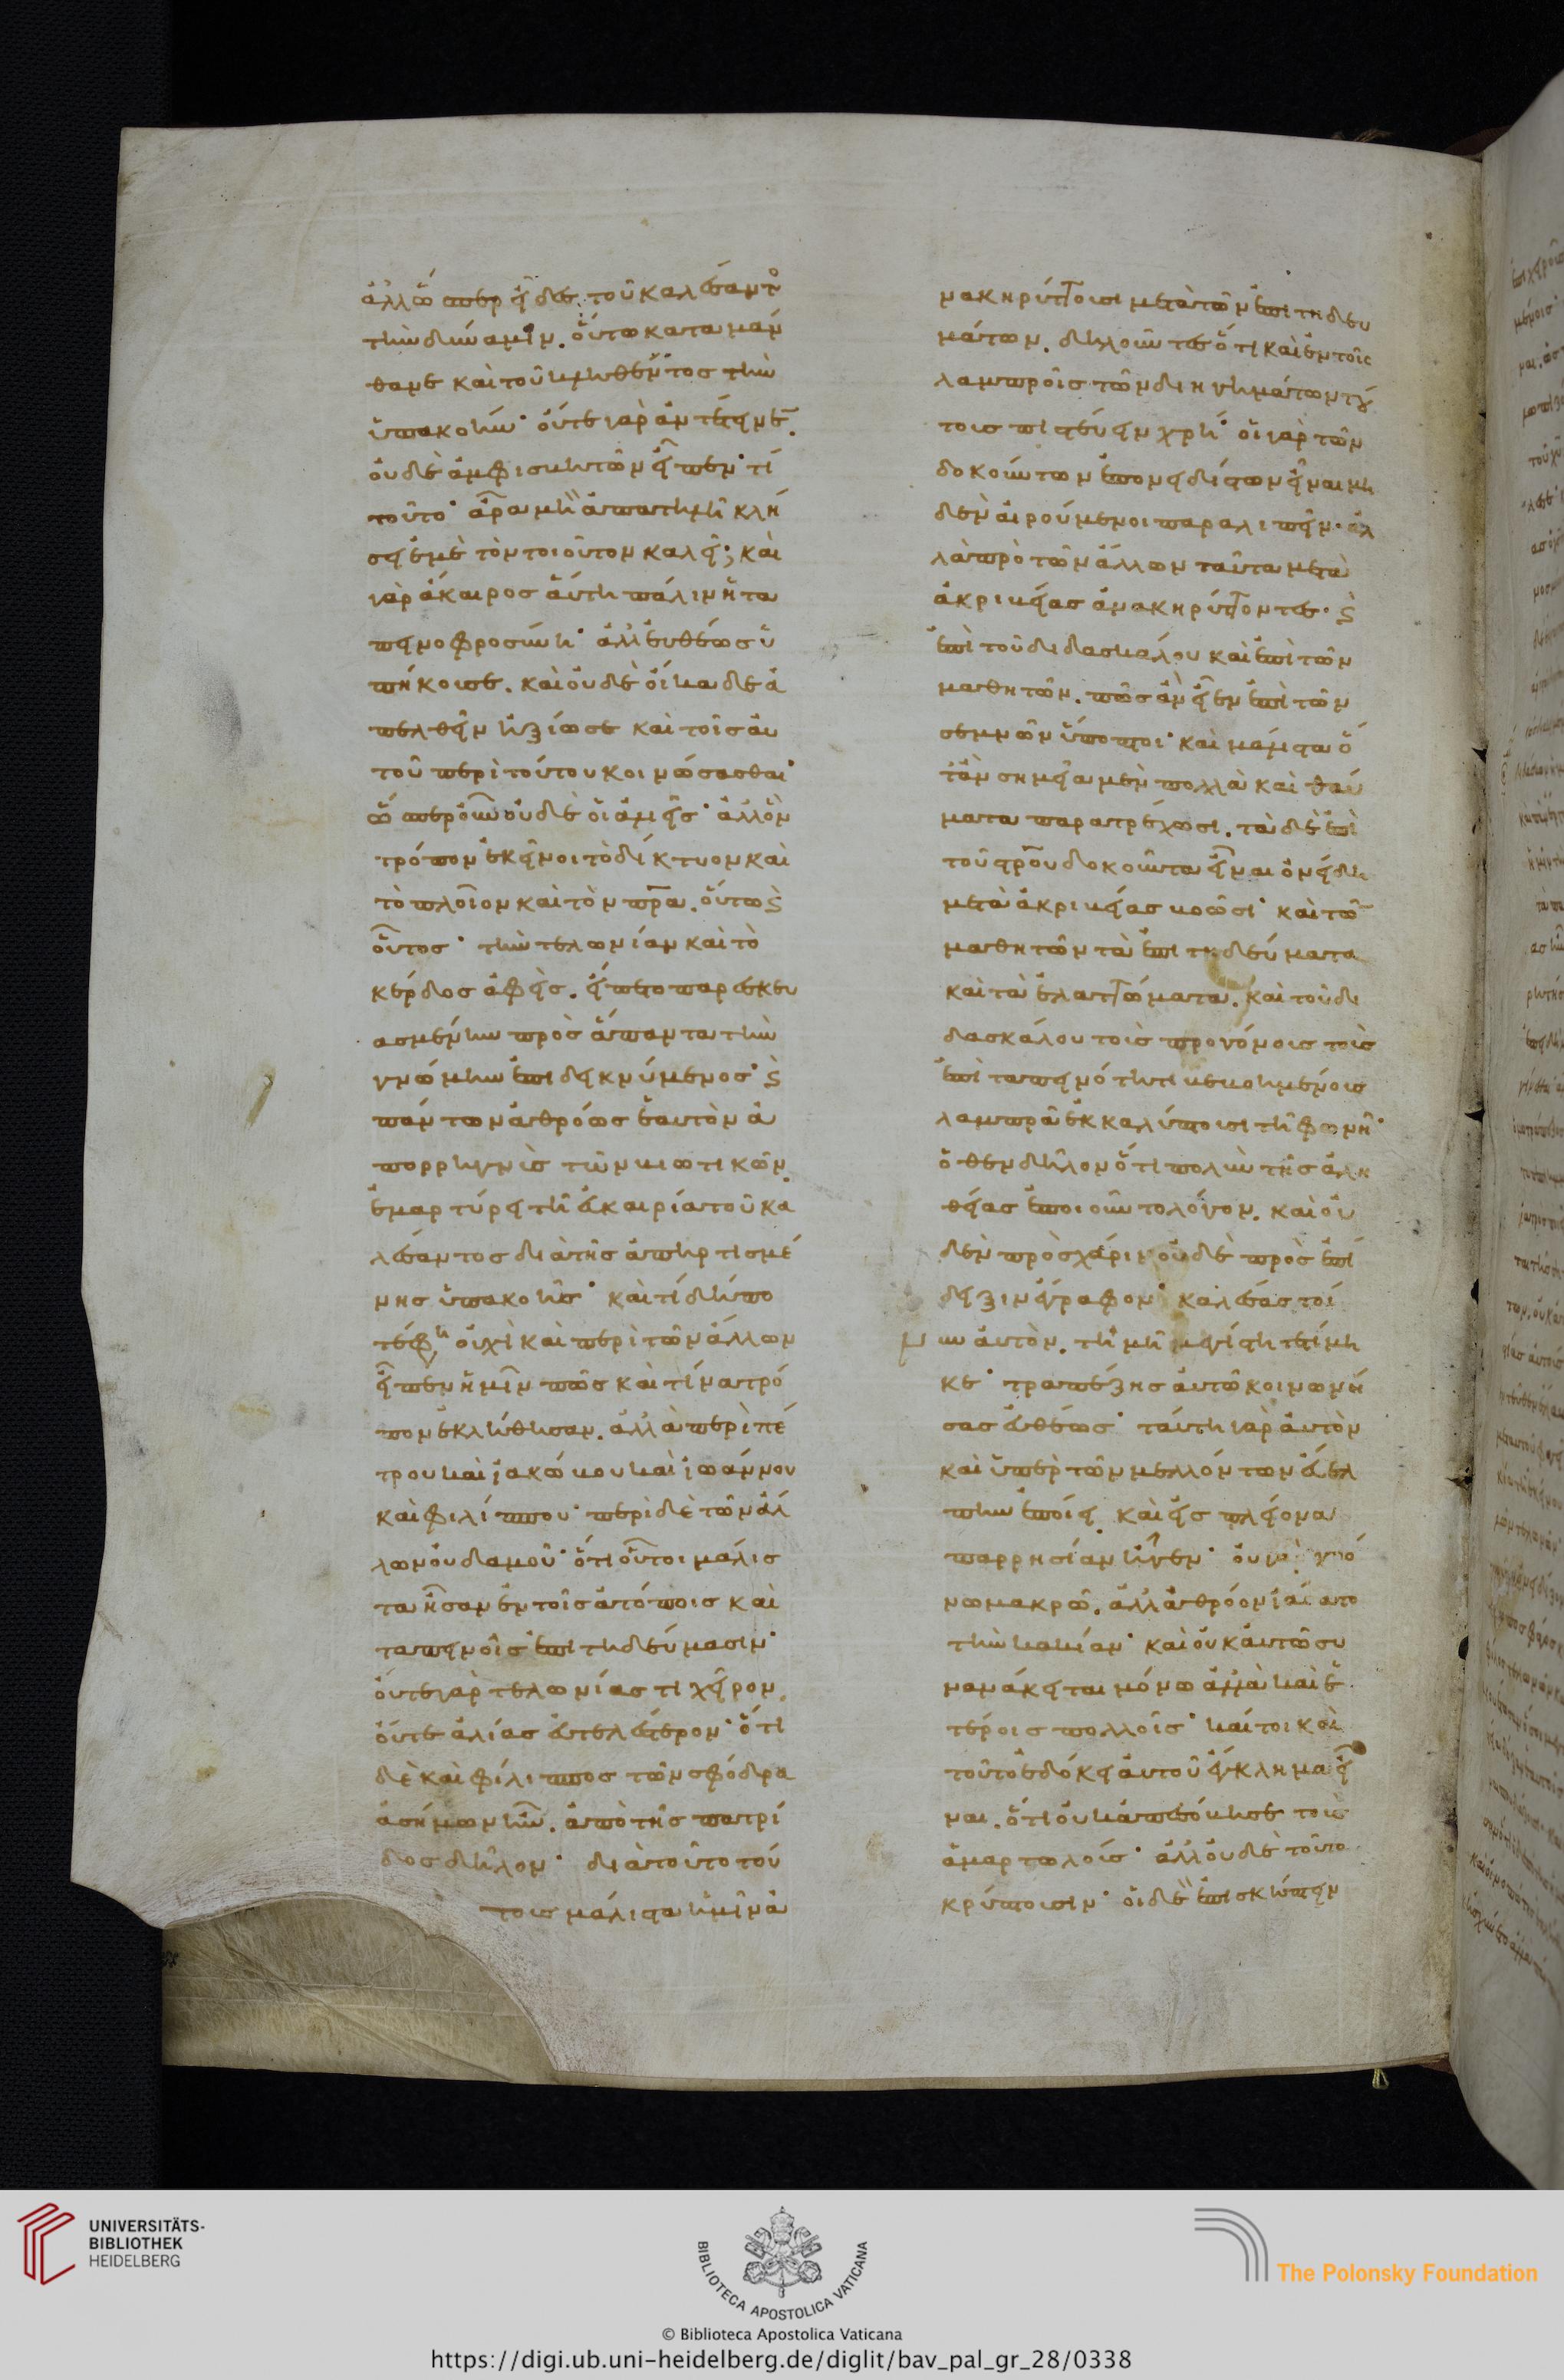 ἀλλ' ὥσπερ εἶδες τοῦ καλέσαντο
τὴν δύναμιν. οὕτω καταμάν
θανε καὶ τοῦ κληθέντος τὴν
ὑπακοήν· οὔτε γὰρ ἀντέτεινε̄.
οὐδὲ ἀμφισβητῶν εἶπεν· τί
τοῦτο· ἆρα μὴ ἀπατηλῆ κλή
σει ἐμὲ τὸν τοιοῦτον καλεῖ; καὶ
γὰρ ἄκαιρος αὕτη πάλιν ἡ τα
πεινοφροσύνη· ἀλλ' εὐθέως ὑ
πήκουσε. καὶ οὐδὲ οἴκαδε ἀ
πελθεῖν ἠξίωσε καὶ τοῖς αὐ
τοῦ περὶ τούτου κοινώσασθαι·
ὥσπερ οὖν οὐδὲ οἱ ἁλιεῖς· ἀλλ' ὃν
τρόπον ἐκεῖνοι τὸ δίκτυον καὶ
τὸ πλοῖον καὶ τὸν πρ̅α. οὕτω ϛ
οὗτος· τὴν τελωνίαν καὶ τὸ
κέρδος ἀφεὶς. εἵπετο παρεσκευ
ασμένην πρὸς ἅπαντα τὴν
γνώμην ἐπιδεικνύμενος· ϛ
πάντων ἀθρόως ἑαυτὸν ἀ
πορρηγνὺς τῶν βιωτικῶν.
ἐμαρτύρει τῆ εὐκαιρία τοῦ κα
λέσαντος διὰ τῆς ἀπηρτισμέ
νης ὑπακοῆς· καὶ τί δήπο
τέ φη οὐχὶ καὶ περὶ τῶν ἄλλων
εἶπεν ἡμῖν πῶς καὶ τίνα τρό
πον ἐκλήθησαν. ἀλλὰ περὶ πέ
τρου καὶ ἰακώβου καὶ ἰωάννου
καὶ φιλίππου· περὶ δὲ τῶν ἄλ
λων οὐδαμοῦ· ὅτι οὗτοι μάλισ
τα ἦσαν ἐν τοῖς ἀτόποις καὶ
ταπεινοῖς ἐπιτηδεύμασιν·
οὔτε γὰρ τελωνίας τι χεῖρον.
οὔτε ἁλίας εὐτελέστερον· ὅτι
δὲ καὶ φίλιππος τῶν σφόδρα
ἀσήμων ἦν. ἀπὸ τῆς πατρί
δος δῆλον· διὰ τοῦτο τού
τους μάλιστα ἡμῖν ἀ
νακηρύττουσι μετὰ τῶν ἐπιτηδευ
μάτων. δηλοῦντες ὅτι καὶ ἐν τοῖς
λαμπροῖς τῶν διηγημάτων τού
τοις πιστεύειν χρή· οἱ γὰρ τῶν
δοκούντων ἐπονειδίστων εἶναι μη
δὲν αἱρούμενοι παραλιπεῖν· ἀλ
λὰ πρὸ τῶν ἄλλων ταῦτα μετὰ
ἀκριβείας ἀνακηρύττοντες· ϛ
ἐπὶ τοῦ διδασκάλου καὶ ἐπὶ τῶν
μαθητῶν. πῶς ἂν εἶεν ἐπὶ τῶν
σεμνῶν ὕποπτοι· καὶ μάλιστα ὅ
τὰν σημεῖα μὲν πολλὰ καὶ θαύ
ματα παρατρέχωσι. τὰ δὲ ἐπὶ
τοῦ στ̅ροῦ δοκοῦντα εἶναι ὀνείδη
μετὰ ἀκριβείας βοῶσι· καὶ τῶ̅
μαθητῶν τὰ ἐπιτηδεύματα
καὶ τὰ ἐλαττώματα. καὶ τοῦ δι
δασκάλου τοὺς προγόνους τοὺς
ἐπὶ ταπεινότητι βεβοημένους
λαμπρᾶ ἐκκαλύπτουσι τῆ φωνῆ·
ὅθεν δῆλον ὅτι πολὺν τῆς ἀλη
θείας ἐποιοῦντο λόγον. καὶ οὐ
δὲν πρὸς χάριν οὐδὲ πρὸς ἐπί
δειξιν ἔγραφον· καλέσας τοί
νυν αὐτὸν. τιμῆ μεγίστη τετίμη
κε· τραπέζης αὐτῶ κοινωνή
σας εὐθέως· ταύτη γὰρ αὐτὸν
καὶ ὑπὲρ τῶν μελλόντων εὔελ
πιν ἐποίει καὶ εἰς πλείονα
παρρησίαν ἦγεν· οὐ γὰρ χρό
νω μακρῶ. ἀλλ' ἀθρόον ἰάσατο
τὴν κακίαν· καὶ οὐκ αὐτῶ συ
νανάκειται μόνω ἀλλὰ καὶ ἑ
τέροις πολλοῖς· καίτοι καὶ
τοῦτο ἐδόκει αὐτοῦ ἔγκλημα εἶ
ναι. ὅτι οὐκ ἀπεσόβησε τοὺς
ἁμαρτωλούς· ἀλλ' οὐδὲ τοῦτο
κρύπτουσιν· οἱ δὲ ἐπισκήπτειν
UNIVERSITÄTS-
BIBLIOTHEK
HEIDELBERG
BIBLIOTECA APOSTOLICA VATICANA
The Polonsky Foundation
© Biblioteca Apostolica Vaticana
https://digi.ub.uni-heidelberg.de/diglit/bav_pal_gr_28/0338